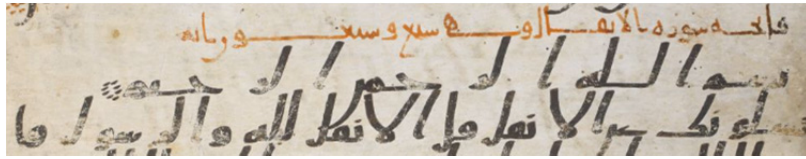 فاتحه سوره الانفال وهي سبع وسبعون ايه
بسم الله الرحمن الرحيم
يسلونك عن الانفل قل الانفل لله والرسول فا